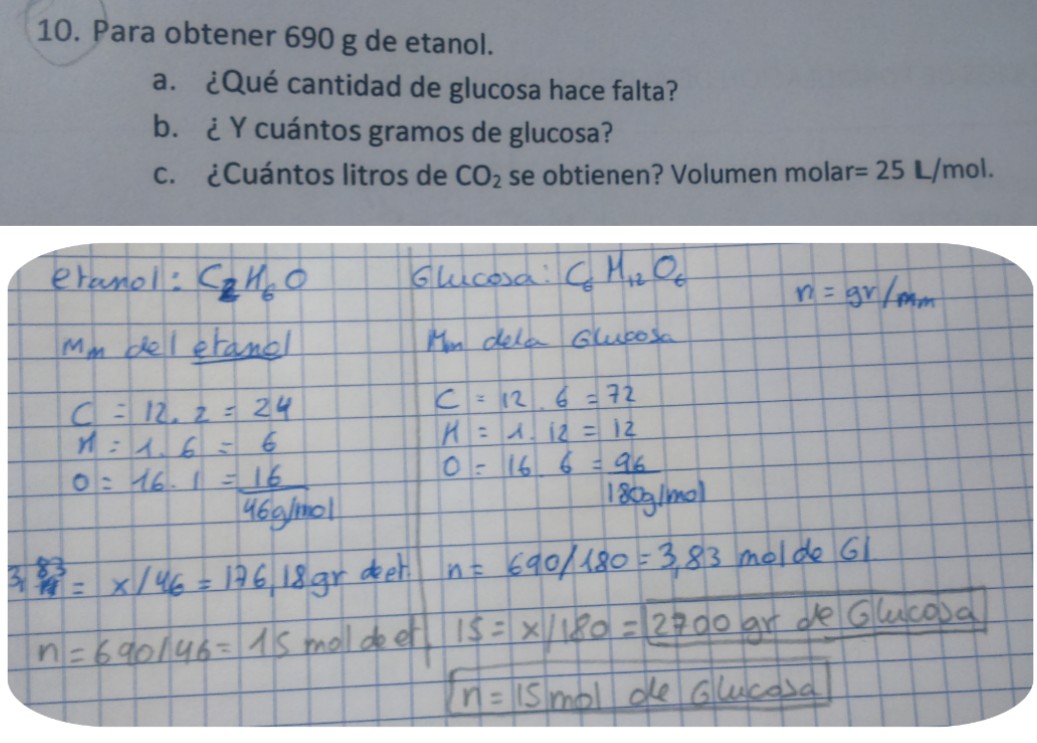 10. Para obtener 690 g de etanol.
a. ¿Qué cantidad de glucosa hace falta?
b. ¿ Y cuántos gramos de glucosa?
c. ¿Cuántos litros de CO₂ se obtienen? Volumen molar= 25 L/mol.
etanol: C₂H₆O Glucosa: C₆H₁₂O₆ n = gr/mm
Mm del etanol Mm dela Glucosa
C = 12. 2 = 24 C = 12 . 6 = 72
H = 1. 6 = 6 H = 1. 12 = 12
O = 16. 1 = 16 O = 16 6 = 96
46g/mol 180g/mol
3,83 = x/46 = 176,18gr de et. n = 690/180 = 3,83 mol de Gl
n = 690/46 = 15 mol de et. 15 = x/180 = 2700 gr de Glucosa
n = 15 mol de Glucosa